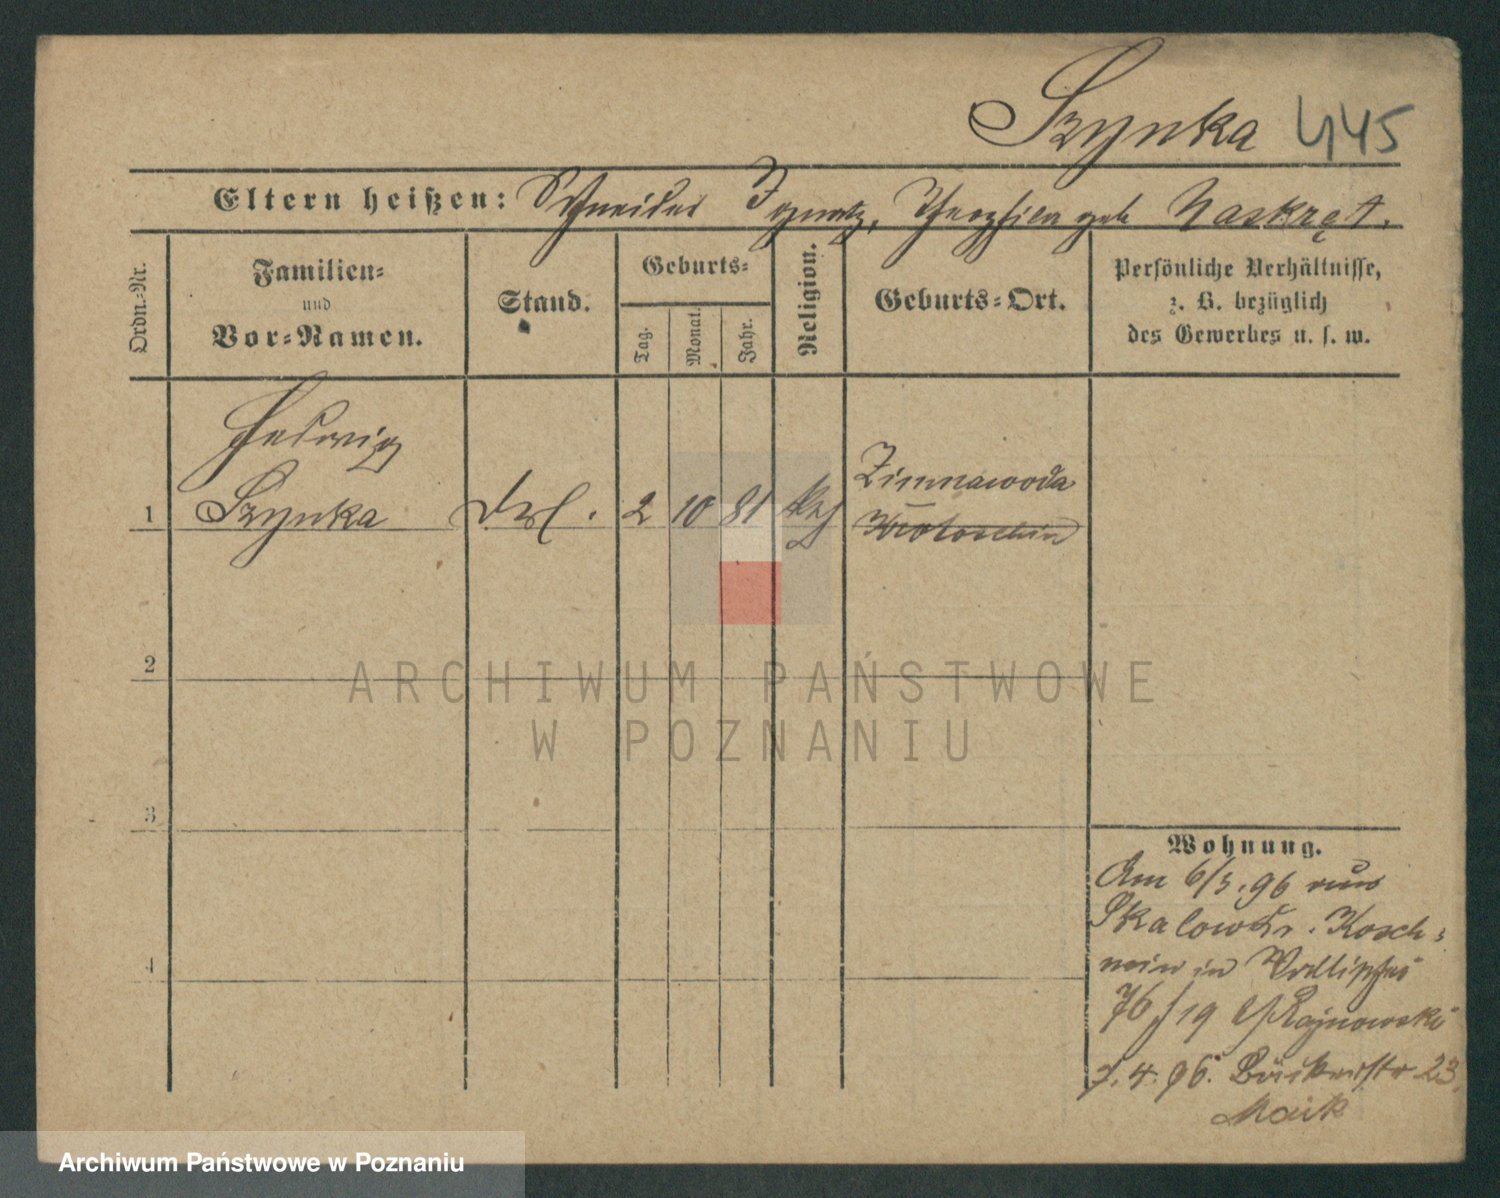 Szynka 445
Eltern heißen: Schneider Ignatz, Theophila geb Naskręt.
Ordn.-Nr.
Familien-
und
Vor-Namen.
Stand.
Geburts-
Tag.
Monat.
Jahr.
Religion.
Geburts-Ort.
Persönliche Verhältnisse,
z. B. bezüglich
des Gewerbes u. s. w.
Hedwig
Zimnawoda
1 Szynka 2 10 81 kath
Krotoschin
2
3
4
Wohnung.
Am 6/3.96 aus
Skalow Kr. Kosch-
min in
76/19 Rajnowski
7.4.96. Bäckerstr 23.
ARCHIWUM PAŃSTWOWE
W POZNANIU
Archiwum Państwowe w Poznaniu